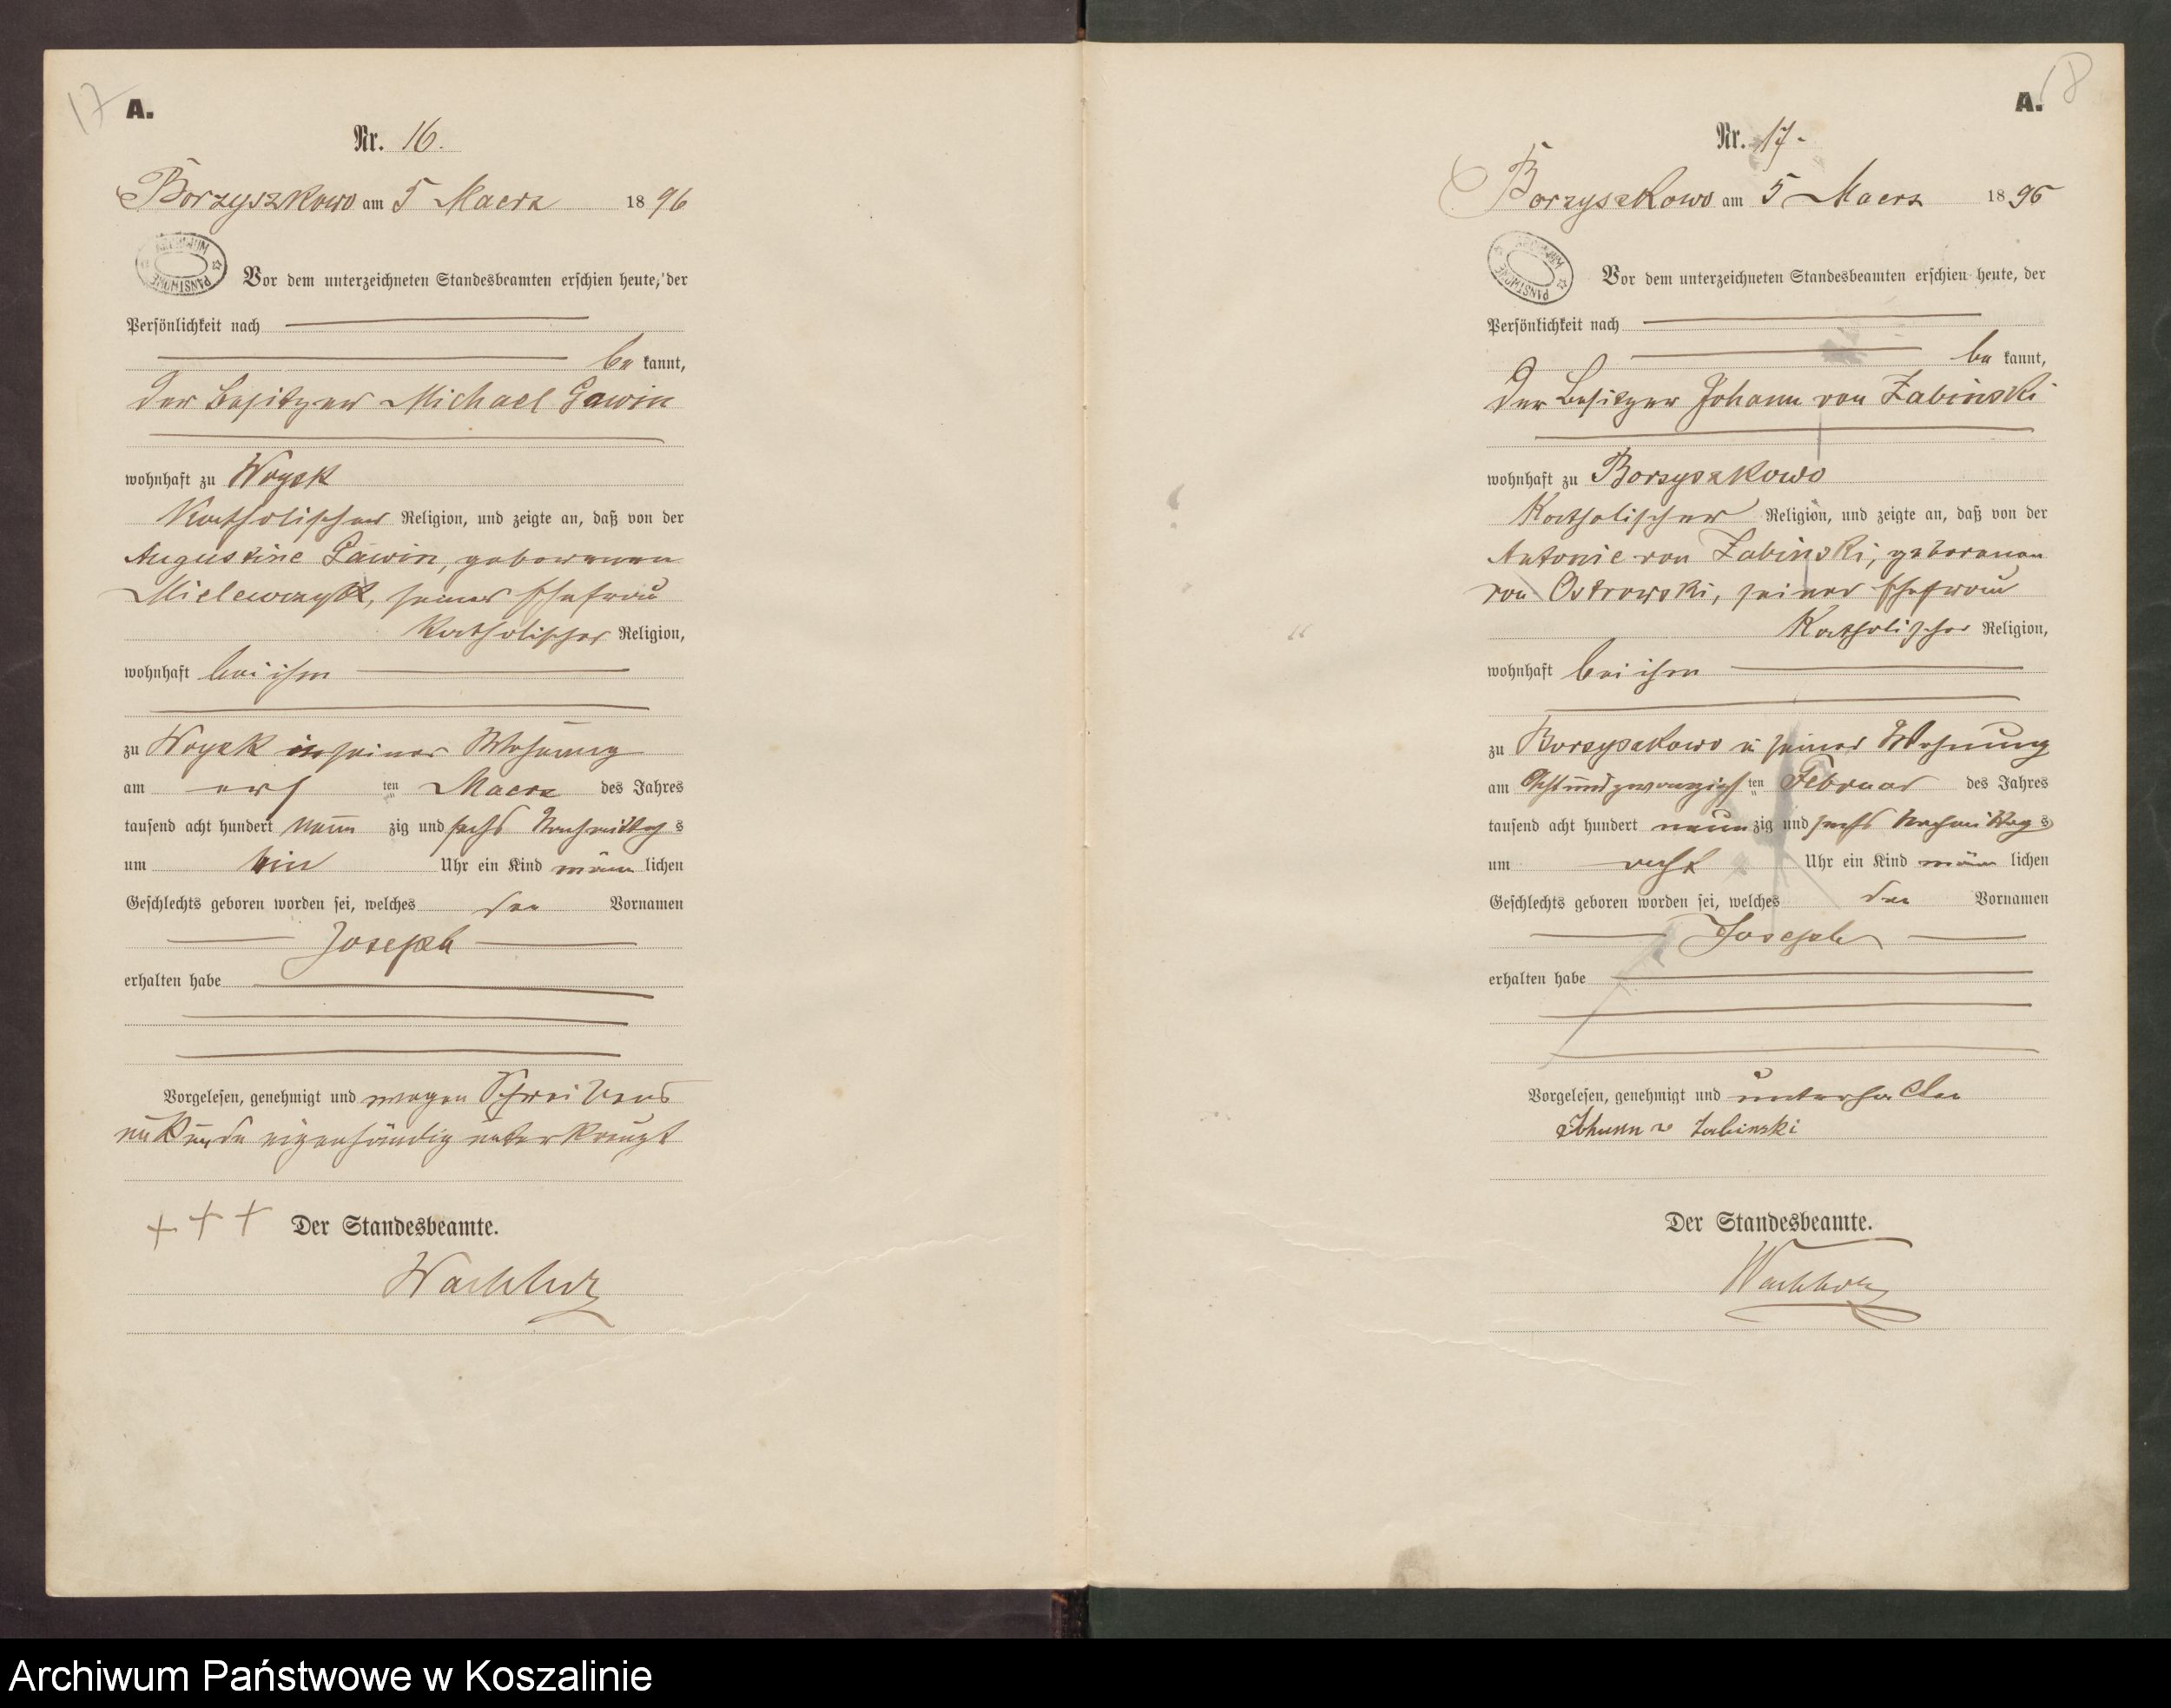 17
A.
Nr. 16.
Borzyszkowo am 5 Maerz 1896
ARCHIWUM PAŃSTWOWE
Vor dem unterzeichneten Standesbeamten erschien heute, der
Persönlichkeit nach
be kannt,
der Besitzer Michael Gawin
wohnhaft zu Woysk
Katholischer Religion, und zeigte an, daß von der
Augustine Gawin, geborenen
Mielewczyk, seiner Ehefrau
Katholischer Religion,
wohnhaft bei ihm
zu Woysk in seiner Wohnung
am ers ten Maerz des Jahres
tausend acht hundert neun zig und sechs Nachmittags
um Uhr ein Kind männ lichen
Geschlechts geboren worden sei, welches den Vornamen
Joseph
erhalten habe
Vorgelesen, genehmigt und wegen Schreibens
unkunde eigenhändig unterkreuzt
+ + + Der Standesbeamte.
Wachholz
18
A.
Nr. 17.
Borzyszkowo am 5 Maerz 1896
ARCHIWUM PAŃSTWOWE
Vor dem unterzeichneten Standesbeamten erschien heute, der
Persönlichkeit nach
be kannt,
Der Besitzer Johann von Zabinski
wohnhaft zu Borzyszkowo
Katholischer Religion, und zeigte an, daß von der
Antonie von Zabinski, geborenen
von Ostrowski, seiner Ehefrau
Katholischer Religion,
wohnhaft bei ihm
zu Borzyszkowo in seiner Wohnung
am Achtundzwanzigs ten Februar des Jahres
tausend acht hundert neun zig und sechs Nachmittags
um acht Uhr ein Kind männ lichen
Geschlechts geboren worden sei, welches den Vornamen
Joseph
erhalten habe
Vorgelesen, genehmigt und unterschrieben
Johann v Zabinski
Der Standesbeamte.
Wachholz
Archiwum Państwowe w Koszalinie